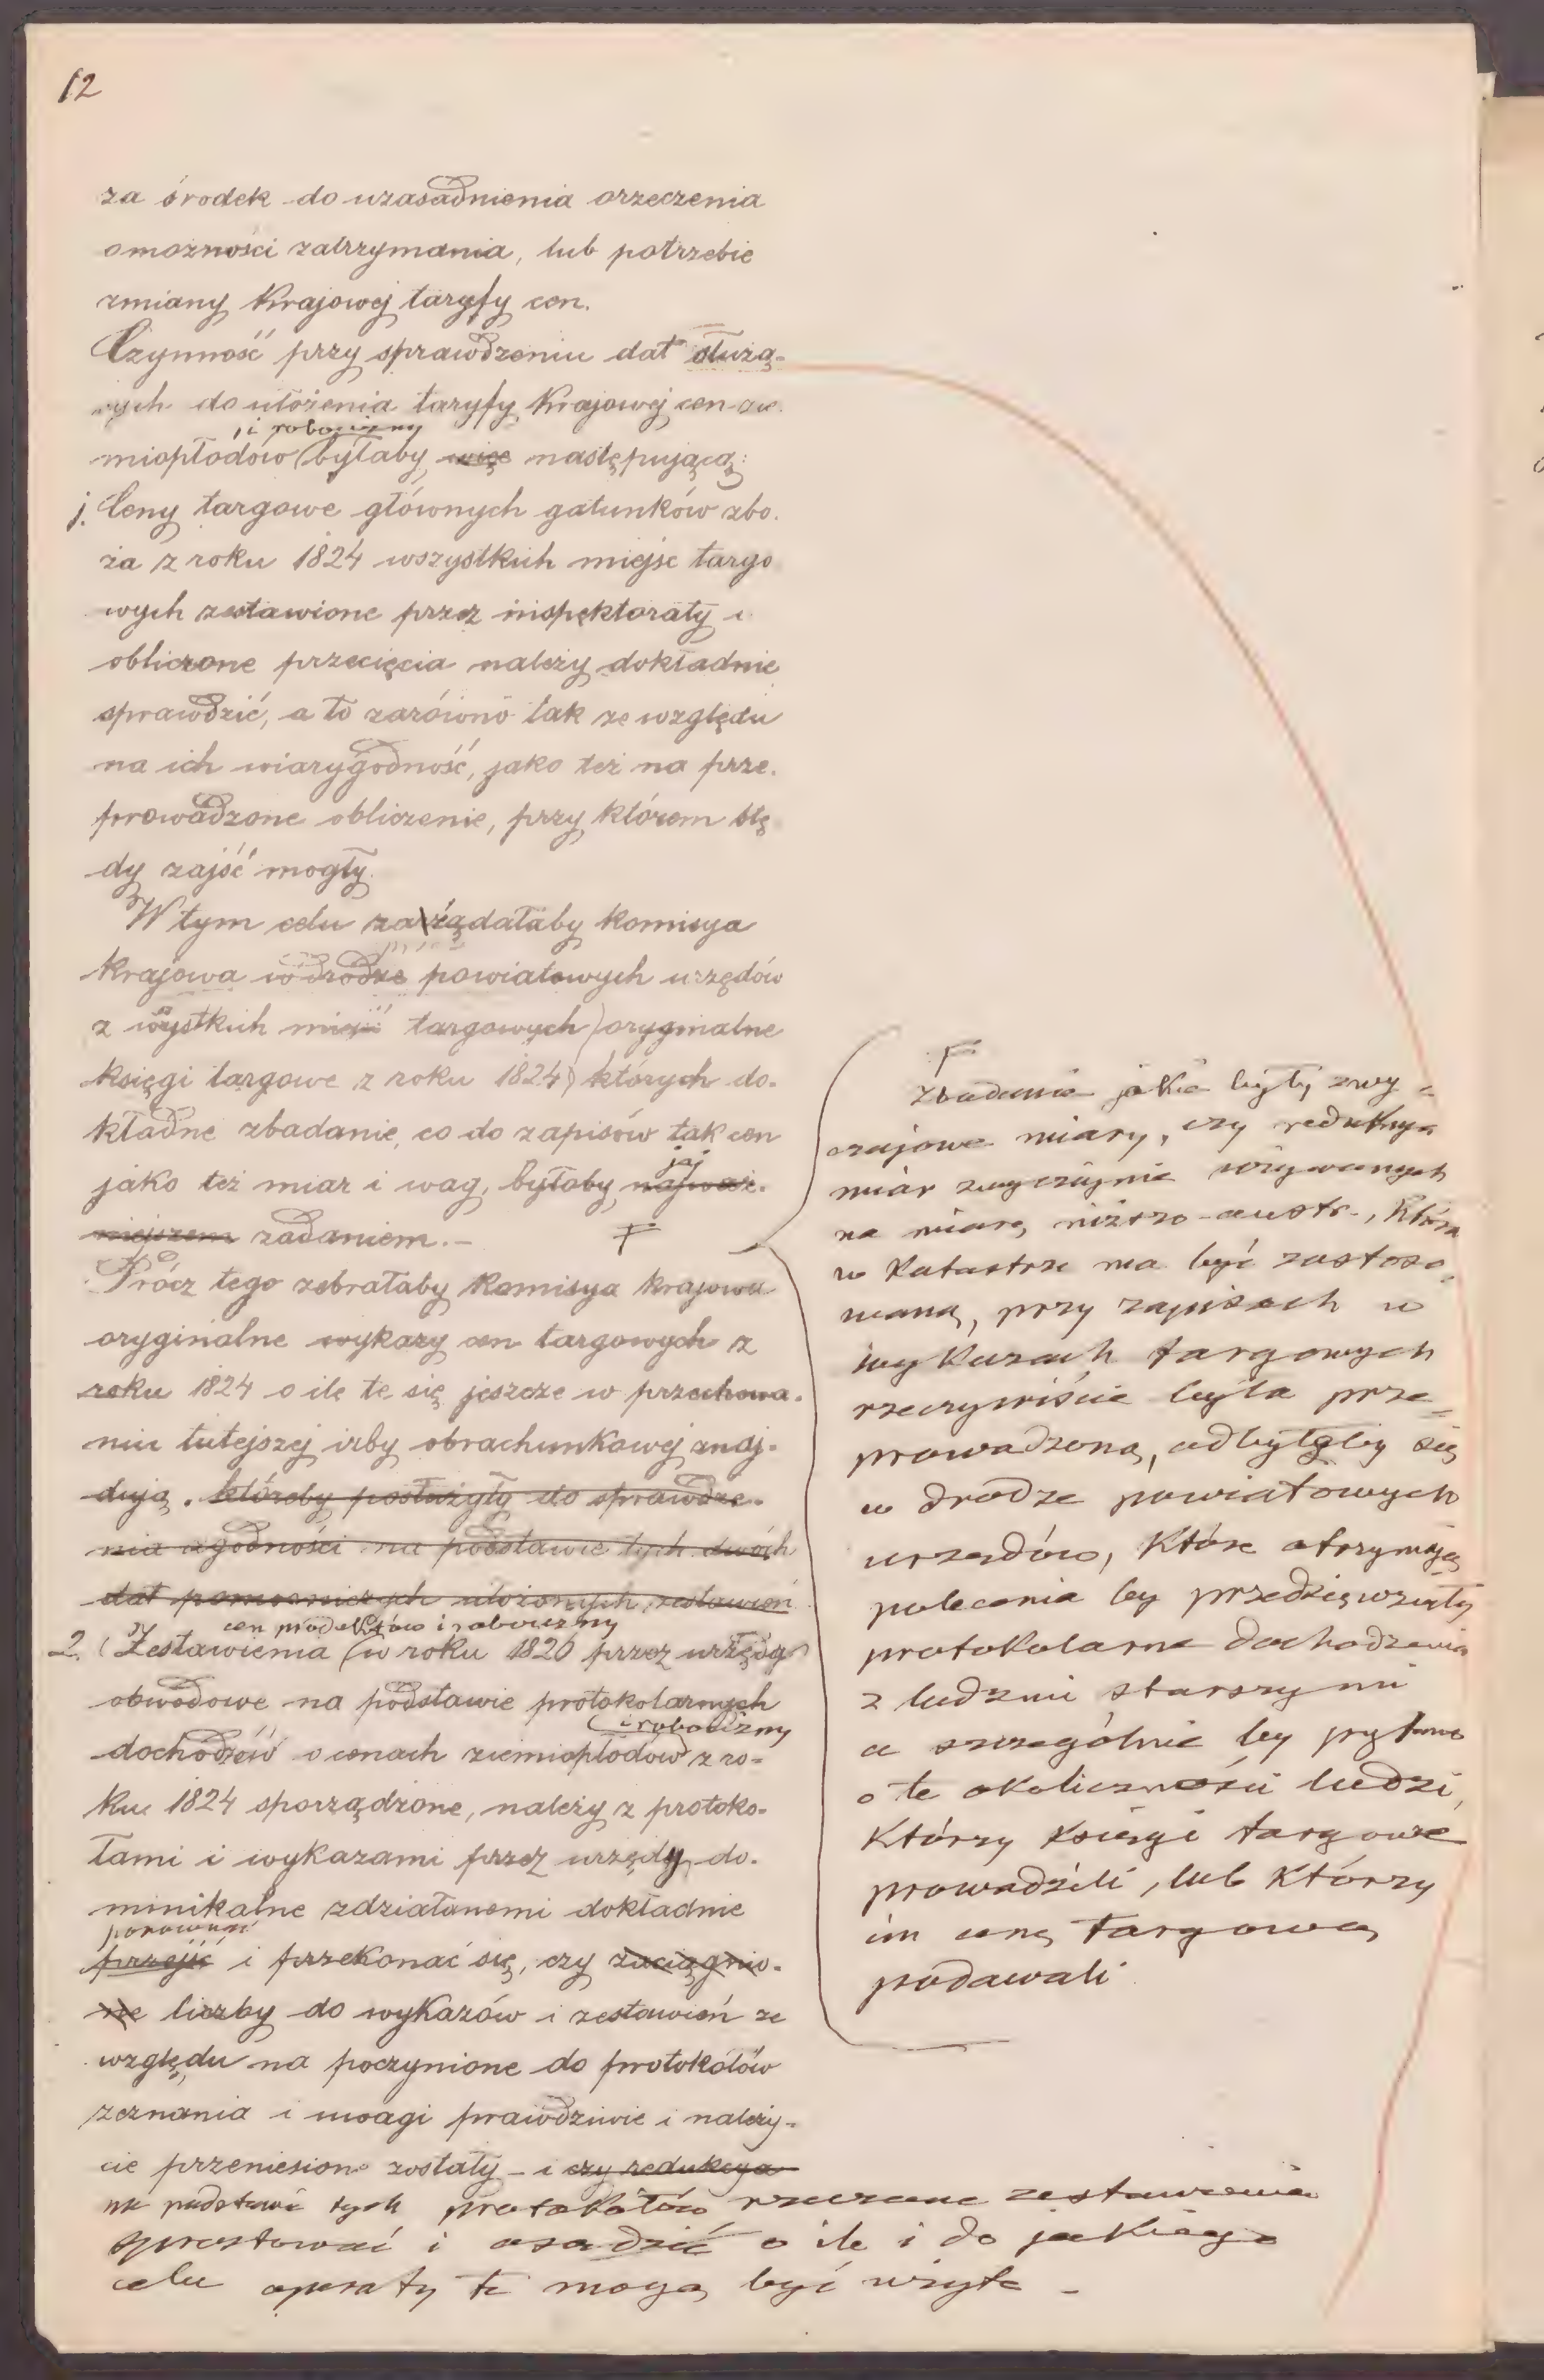 12
za środek do uzasadnienia orzeczenia
omożności zatrzymania, lub potrzebie
zmiany Krajowej taryfy cen.
Czynność przy sprawdzeniu dat służą-
cych do ułożenia taryfy Krajowej cen zie-
, i robocizny
miopłodów byłaby więc następująca:
1. Ceny targowe głównych gatunków zbo-
ża z roku 1824 wszystkich miejsc targo
wych zestawione przez inspektoraty i
obliczone przecięcia należy dokładnie
sprawdzić, a to zarówno tak ze względu
na ich wiarygodność, jako też na prze-
prowadzone obliczenie, przy którem błę
dy zajść mogły.
W tym celu zażądałaby komisya
krajowa w drodze powiatowych urzędów
z wszystkich miejsc targowych oryginalne
księgi targowe z roku 1824) których do-
kładne zbadanie, co do zapisów tak cen
jako też miar i wag, byłoby jej najważ-
niejszem zadaniem.-
Prócz tego zebrałaby Komisya krajowa
oryginalne wykazy cen targowych z
roku 1824 o ile te się jeszcze w przechowa-
niu tutejszej izby obrachunkowej znaj-
dują. któreby posłużyły do sprawdze-
nia zgodności na podstawie tych dwóch
dat pomocniczych ułożonych zestawień
cen produktów i robocizny
2. Zestawienia (w roku 1820 przez urzędy
obwodowe na podstawie protokolarnych
i robocizny
dochodzeń o cenach ziemiopłodów z ro-
ku 1824 sporządzone, należy z protoko-
łami i wykazami przez urzędy do-
minikalne zdziałanemi dokładnie
porównać
przejść i przekonać się, czy zaciągnio-
ne liczby do wykazów i zestawień ze
względu na poczynione do protokółów
zeznania i uwagi prawdziwie i należy-
cie przeniesione zostały - i czy redukcya
na podstawie tych protokółów rzeczone zestawienia
sprostować i osądzić o ile i do jakiego
celu operaty te mogą być użyte -
Zbadanie jakie były zwy-
czajowe miary, czy redukcya
miar zwyczajnie używanych
na miarę niższo-austr., która
w Katastrze ma być zastoso-
waną, przy zapisach w
wykazach targowych
rzeczywiście była prze-
prowadzoną, odbyłoby się
w drodze powiatowych
urzędów, które otrzymają
polecenie by przedsięwzięły
protokolarne dochodzenia
z ludźmi starszymi
a szczególnie by pytano
o te okoliczności ludzi,
którzy księgi targowe
prowadzili, lub którzy
im cenę targową
podawali